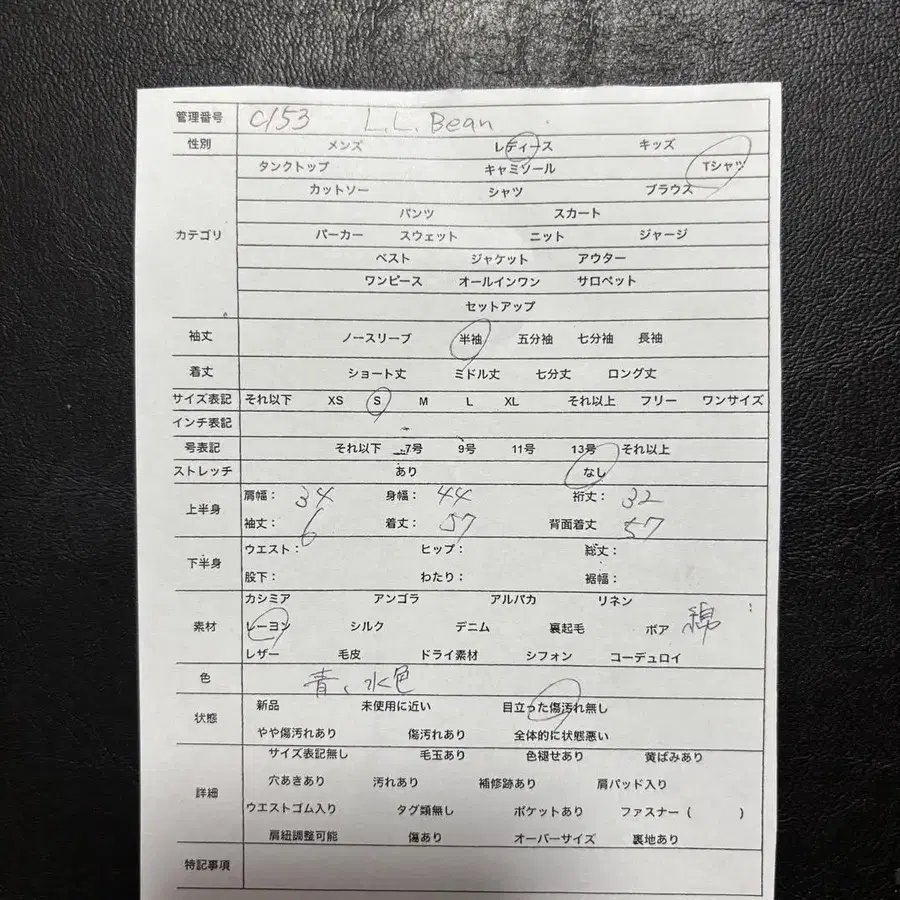 管理番号 C153 L.L.Bean
性別 メンズ レディース キッズ
タンクトップ キャミソール Tシャツ
カットソー シャツ ブラウス
パンツ スカート
カテゴリ パーカー スウェット ニット ジャージ
ベスト ジャケット アウター
ワンピース オールインワン サロペット
セットアップ
袖丈 ノースリーブ 半袖 五分袖 七分袖 長袖
着丈 ショート丈 ミドル丈 七分丈 ロング丈
サイズ表記 それ以下 XS S M L XL それ以上 フリー ワンサイズ
インチ表記
号表記 それ以下 7号 9号 11号 13号 それ以上
ストレッチ あり なし
上半身 肩幅: 34 身幅: 44 裄丈: 32
袖丈: 6 着丈: 57 背面着丈 57
下半身 ウエスト: ヒップ: 総丈:
股下: わたり: 裾幅:
カシミア アンゴラ アルパカ リネン
素材 レーヨン シルク デニム 裏起毛 ボア 綿
レザー 毛皮 ドライ素材 シフォン コーデュロイ
色 青、水色
状態 新品 未使用に近い 目立った傷汚れ無し
やや傷汚れあり 傷汚れあり 全体的に状態悪い
サイズ表記無し 毛玉あり 色褪せあり 黄ばみあり
詳細 穴あきあり 汚れあり 補修跡あり 肩パッド入り
ウエストゴム入り タグ類無し ポケットあり ファスナー( )
肩紐調整可能 傷あり オーバーサイズ 裏地あり
特記事項